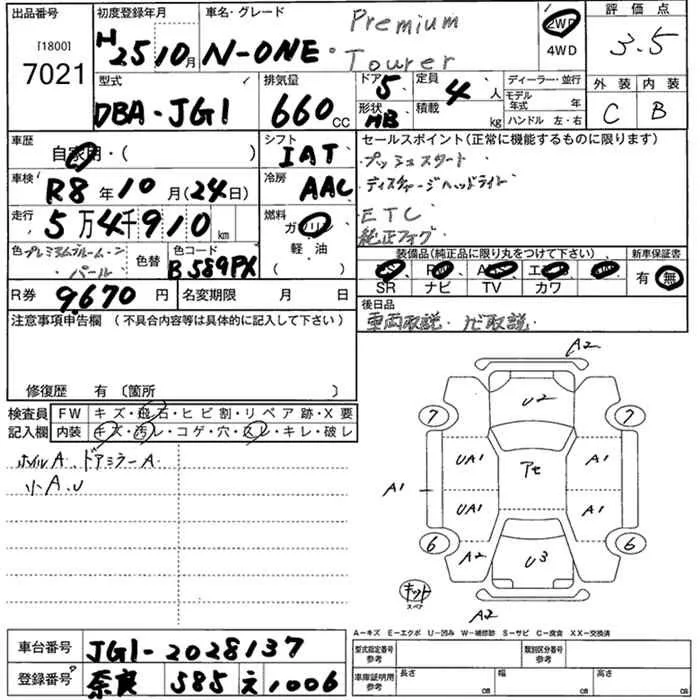 出品番号 初度登録年月 車名・グレード 評価点
[1800]
7021
H2510月 N-ONE・ Premium Tourer
2WD
4WD
3.5
型式 排気量 ドア 定員 ディーラー・並行 外装 内装
DBA-JG1 660cc 5 4人 モデル年式 年 C B
形状 HB 積載 kg ハンドル 左・右
車歴 シフト セールスポイント(正常に機能するものに限ります)
自家用・( ) IAT プッシュスタート
車検 冷房 ディスチャージヘッドライト
R8年10月(24日) AAC ETC
走行 燃料 純正フォグ
5万4千910km ガソリン
軽・油
( )
装備品(純正品に限り丸をつけて下さい) 新車保証書
SR ナビ TV カワ
有・無
色 プレミアムブルームーン・パール 色替 色コード B589PX
R券 9,670円 名変期限 月 日
後日品
車両取説・ナビ取説
注意事項申告欄(不具合内容等は具体的に記入して下さい)
修復歴 有〔箇所 〕
検査員記入欄 FW キズ・飛石・ヒビ割・リペア跡・X要
内装 キズ・汚レ・コゲ・穴・スレ・キレ・破レ
ホイルA ドアミラーA
小A.U
A2
U2
7 7
UA1 アセ A1
A1
UA1 A1
6 6
A2 U3
キット
スペア
A2
A-キズ E-エクボ U-凹み W-補修跡 S-サビ C-腐食 XX-交換済
車台番号 JG1-2028137
型式指定番号 参考 類別区分番号 参考
登録番号 奈良 585 え 1006
車庫証明用 参考 長さ cm 幅 cm 高さ cm